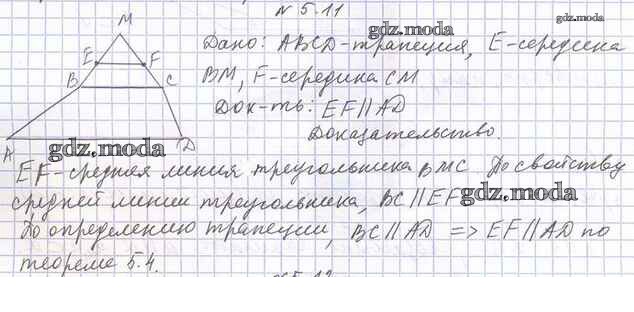 N 5.11
gdz.moda
gdz.moda
M
Дано: ABCD-трапеция, E-середина
E F
BM, F-середина CM
B C
Док-ть: EF || AD
Доказательство.
A D
gdz.moda
EF-средняя линия треугольника BMC. По свойству
средней линии треугольника, BC || EF
gdz.moda
По определению трапеции, BC || AD => EF || AD по
теореме 5.4.